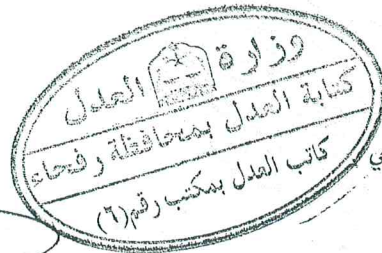 وزارة العدل
كتابة العدل بمحافظة رفحاء
كاتب العدل بمكتب رقم (٦)
ي